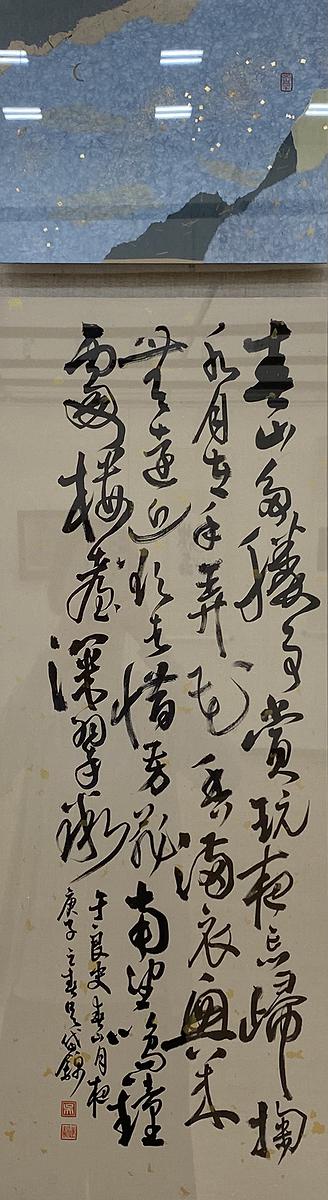 春山多勝事賞玩夜忘歸掬
水月在手弄花香滿衣興來
無遠近欲去惜芳菲南望鳴鐘
處樓臺深翠微
于良史春山月夜
庚子之春吳